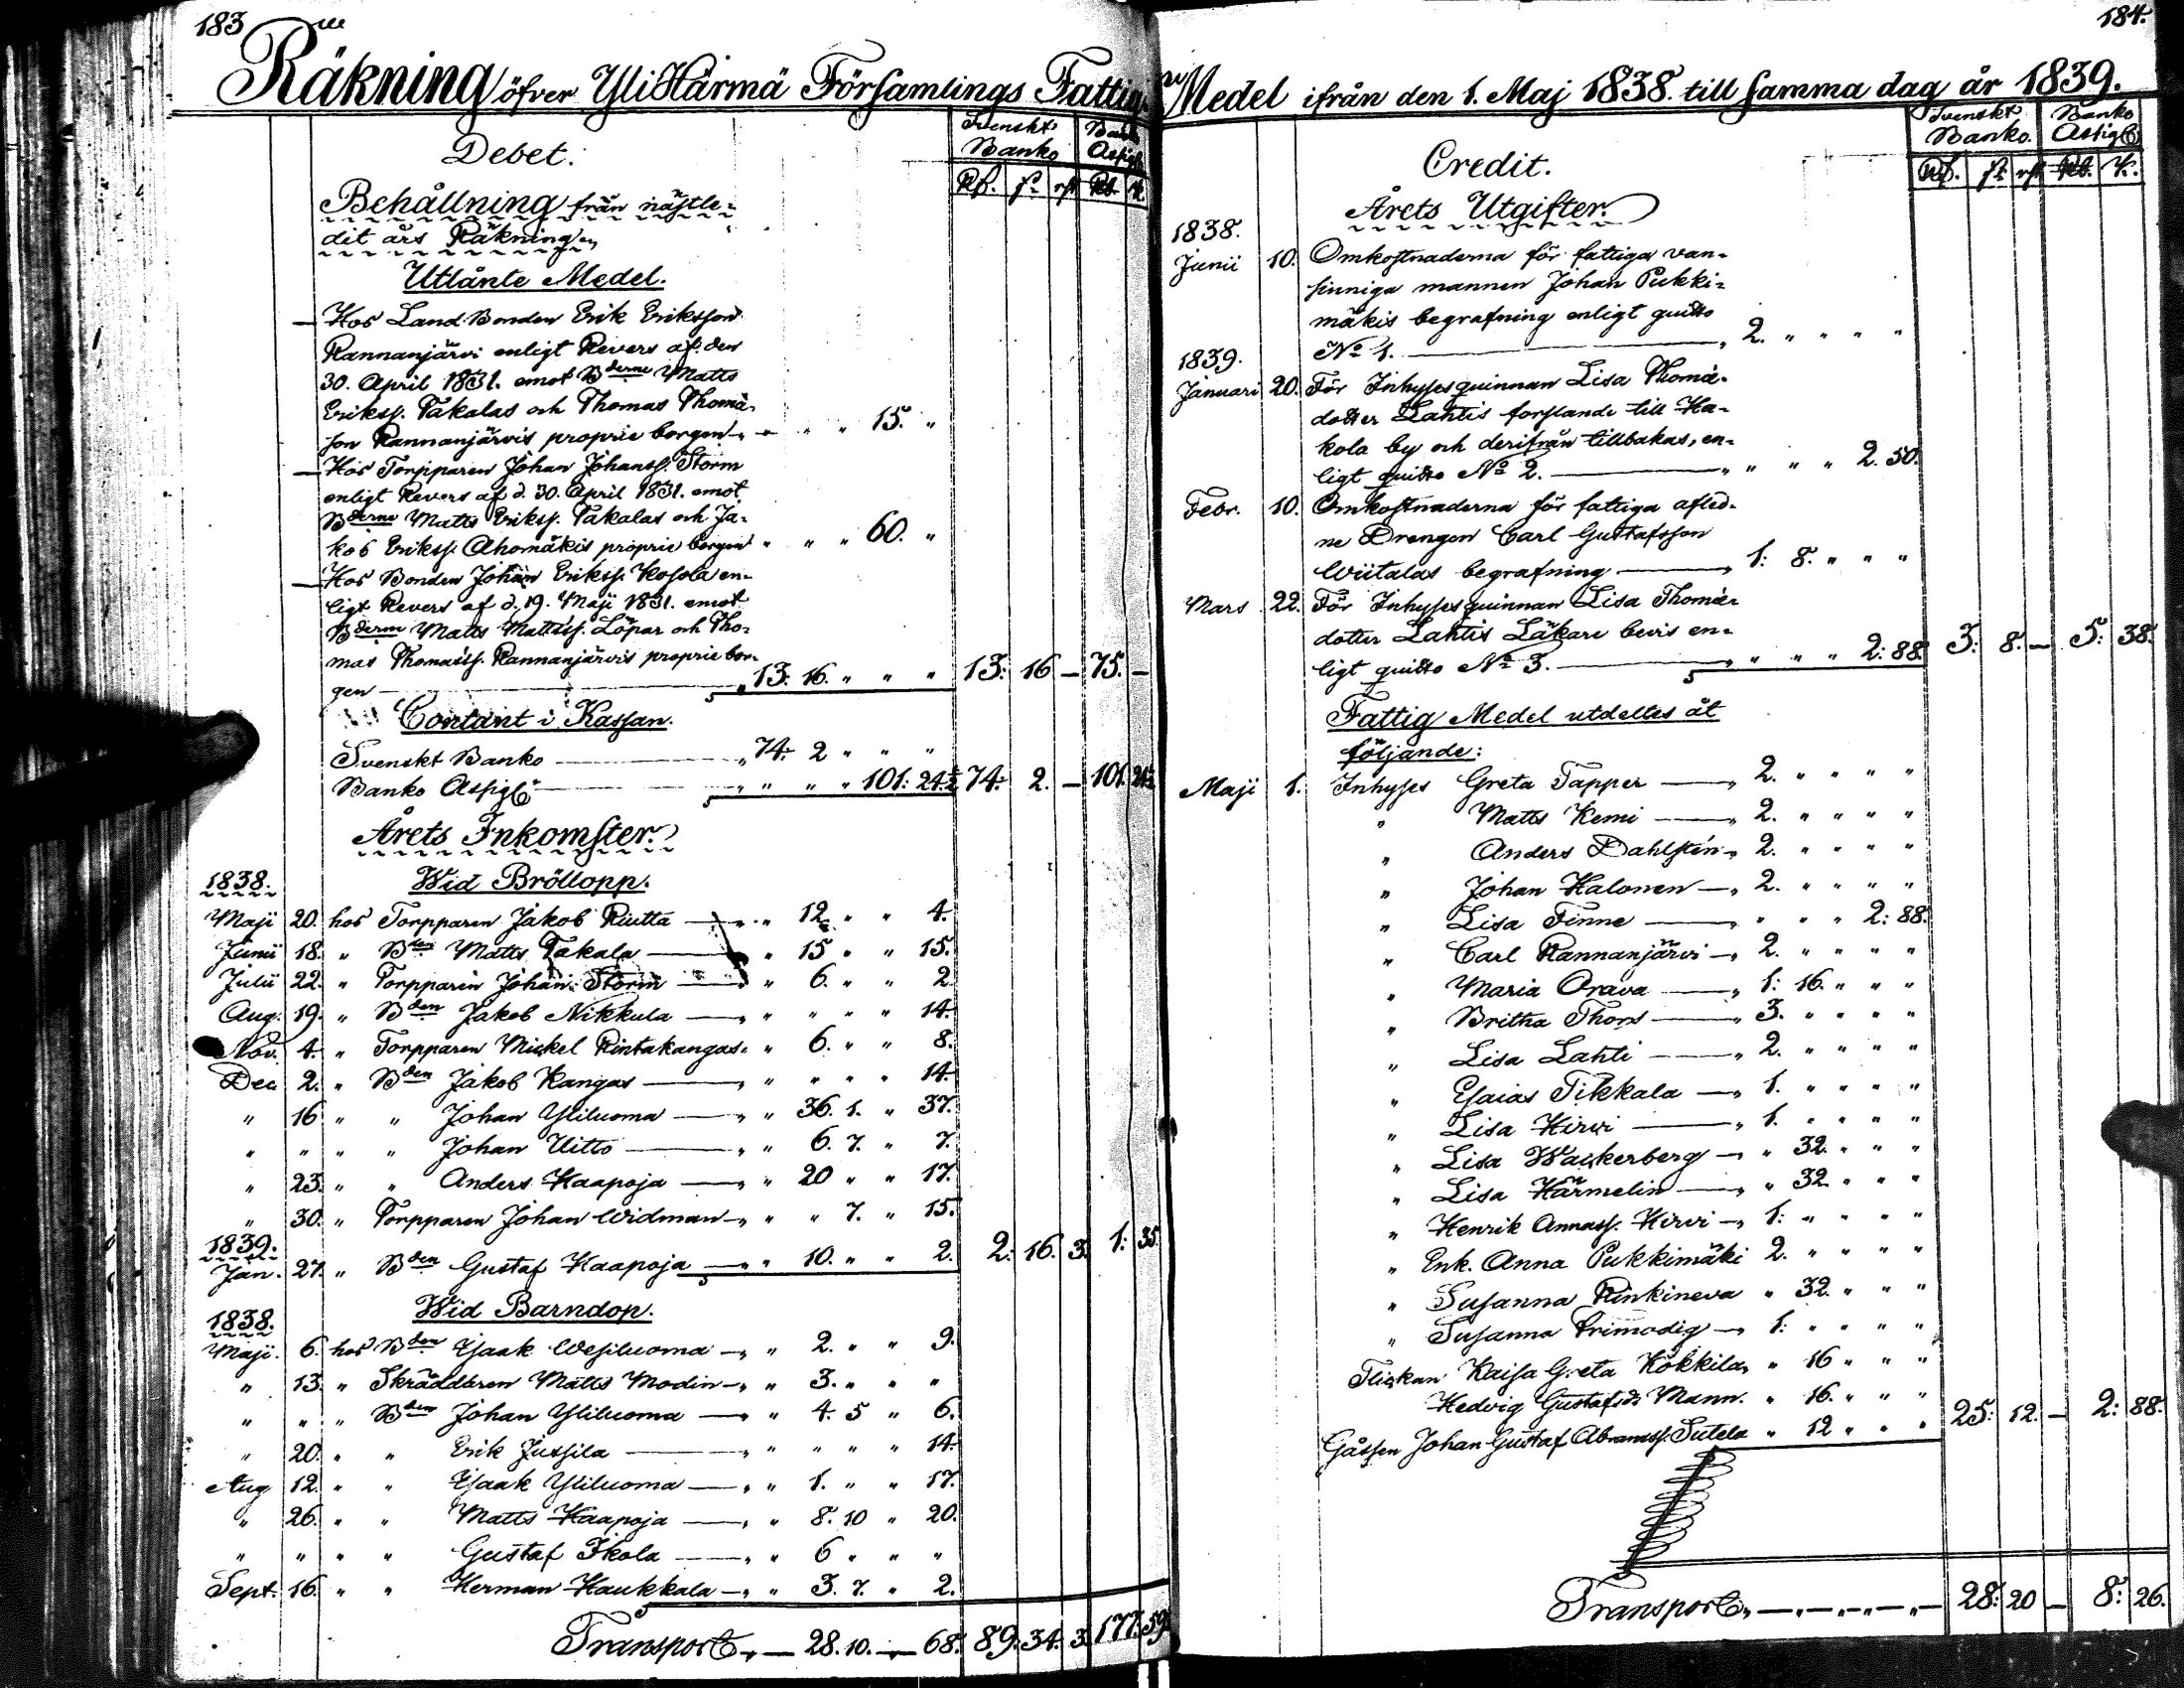 183
Räkning öfver Yli Härmä Församlings Fattig
Svenskt Banko
Debet.
Banko Assigt
Rf. sz. rst. Rb. K.
Behållning från nästle-
dit års Räkning
Utlånte Medel.
— Hos Land Bonden Erik Eriksson
Rannanjärvi enligt Revers af den
30. April 1831. emot Bderne Matts
Erikss. Takalas och Thomas Thomä-
son Rannanjärvis proprie borgen „ „ „ „ 15. „
— Hos Torpparen Johan Johanss. Storm
enligt Revers af d. 30. April 1831. emot
Bderne Matts Erikss. Takalas och Ja-
kob Erikss. Ahomäkis proprie borgen „ „ „ 60. „
— Hos Bonden Johan Erikss. Kosola en-
ligt Revers af d. 19. Maji 1831. emot
Bderne Matts Mattss. Löpar och Tho-
mas Thomass. Rannanjärvis proprie bor-
gen — „ 13: 16. „ „ „ 13: 16 — 75. —
Contant i Kassan.
Svenskt Banko — „ 74: 2 „ „ „
Banko Assigt — „ „ „ „ 101: 24½ 74: 2. — 101. 24½
Årets Inkomster.
1838. Wid Bröllopp.
Maji 20. hos Torpparen Jakob Riutta — „ „ 12 „ „ 4.
Junii 18. „ Bden Matts Takala — „ 15 „ „ 15.
Julii 22. „ Torpparen Johan Storm — „ 6. „ „ 2
Aug. 19. „ Bden Jakob Nikkula — „ „ „ „ „ 14.
Nov. 4. „ Torpparen Mickel Rintakangas „ „ 6. „ „ 8.
Dec 2. „ Bden Jakob Kangas — „ „ „ „ „ 14.
„ 16 „ „ Johan Yliluoma — „ „ 36. 1. „ 37.
„ „ „ „ Johan Uitto — „ „ 6. 7. „ 7.
„ 23. „ „ Anders Haapoja — „ „ 20 „ „ 17.
„ 30. „ Torpparen Johan Widman — „ „ „ 7. „ 15.
1839.
Jan. 27. „ Bden Gustaf Haapoja — „ „ 10. „ „ 2. 2: 16. 3. 1: 35.
1838. Wid Barndop.
Maji. 6. hos Bden Isaak Wesiluoma — „ „ 2. „ „ 9.
„ 13. „ Skräddaren Matts Modin — „ „ 3. „ „ „
„ „ „ Bden Johan Yliluoma — „ „ 4. 5 „ 6.
„ 20. „ „ Erik Jussila — „ „ „ „ „ 14.
Aug 12. „ „ Isaak Yliluoma — „ „ 1. „ „ 17.
„ 26. „ „ Matts Haapoja — „ „ 8. 10 „ 20.
„ „ „ „ Gustaf Ikola — „ „ 6 „ „ „
Sept. 16. „ „ Herman Haukkala — „ „ 3. 7. „ 2.
Transport „ — 28. 10. — 68. 89. 34. 3. 177. 59.
184.
Medel ifrån den 1. Maj 1838. till samma dag år 1839.
Svenskt Banko. Banko Assigt
Credit.
Rf. sz. rst. Rb. K.
Årets Utgifter.
1838.
Junii 10. Omkostnaderna för fattiga van-
sinniga mannen Johan Pukki-
mäkis begrafning enligt quitto
No 1. — „ 2. „ „ „ „
1839.
Januari 20. För Inhyses quinnan Lisa Thomä-
dotter Lahtis forslande till Ha-
kola by och derifrån tillbakas, en-
ligt quitto No 2. — „ „ „ „ 2. 50.
Febr. 10. Omkostnaderna för fattiga afled-
ne Drengen Carl Gustafsson
Wiitalas begrafning — „ 1: 8. „ „ „
Mars 22. För Inhyses quinnan Lisa Thomä-
dotter Lahtis Läkare bevis en-
ligt quitto No 3. — „ „ „ „ 2: 88. 3: 8. — 5: 38.
Fattig Medel utdeltes åt
följande:
Maji 1. Inhyses Greta Tapper — „ 2. „ „ „ „
„ Matts Kemi — „ 2. „ „ „ „
„ Anders Dahlstén „ 2. „ „ „ „
„ Johan Halonen — „ 2. „ „ „ „
„ Lisa Finne — „ „ „ „ 2: 88.
„ Carl Rannanjärvi — „ 2. „ „ „ „
„ Maria Orava — „ 1: 16. „ „ „
„ Britha Thors — „ 3. „ „ „ „
„ Lisa Lahti — „ 2. „ „ „ „
„ Esaias Tikkala — „ 1. „ „ „ „
„ Lisa Hirvi — „ 1. „ „ „ „
„ Lisa Wackerberg — „ „ 32. „ „ „
„ Lisa Härmelin — „ „ 32. „ „ „
„ Henrik Annass. Hirvi — „ 1: „ „ „ „
„ Enk. Anna Pukkimäki 2. „ „ „ „
„ Susanna Rinkineva „ 32. „ „ „
„ Susanna Frimodig — „ 1: „ „ „ „
Flickan Kaisa Greta Kökkila „ „ 16 „ „ „
Hedvig Gustafsdr Mann. „ 16. „ „ „
Gåssen Johan Gustaf Abramss. Sutela „ 12 „ „ „ 25: 12. — 2: 88.
Transport „ — „ — „ — „ — 28: 20 — 8: 26.